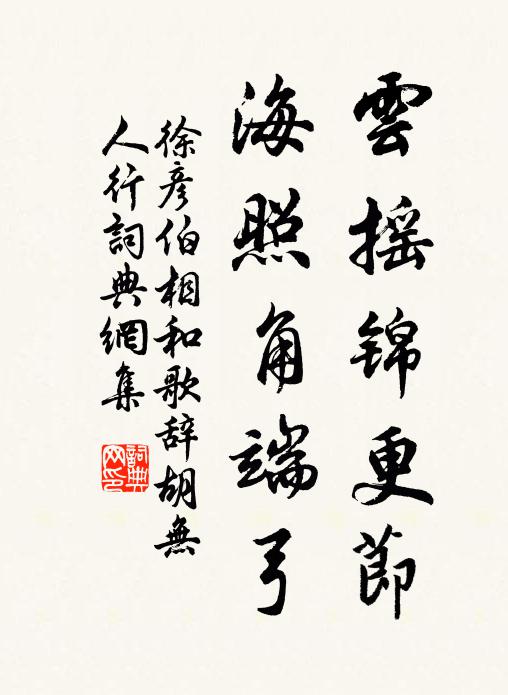 雲摇锦更節
海照角端弓
徐彦伯相和歌辞胡無
人行詞典網集
詞典
网印